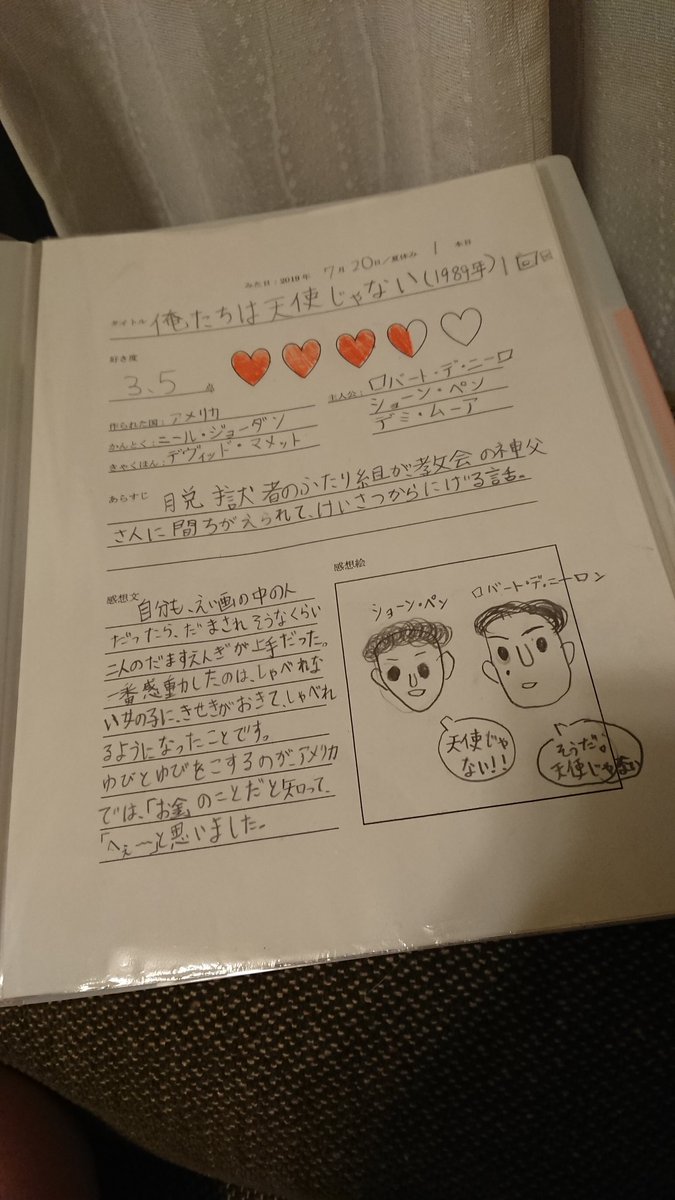 みた日：2019年 7月20日／夏休み 1 本目
タイトル 俺たちは天使じゃない(1989年) 1回目
好き度
3.5 点
作られた国：アメリカ
かんとく：ニール・ジョーダン
きゃくほん：デヴィッド・マメット
主人公：ロバート・デ・ニーロ
ショーン・ペン
デミ・ムーア
あらすじ 脱獄者のふたり組が教会の神父
さんに間ちがえられて、けいさつからにげる話。
感想文 自分も、えい画の中の人
だったら、だまされそうなくらい
二人のだますえんぎが上手だった。
一番感動したのは、しゃべれな
い女の子に、きせきがおきて、しゃべれ
るようになったことです。
ゆびとゆびをこするのが、アメリカ
では、「お金」のことだと知って、
「へぇ〜」と思いました。
感想絵
ショーン・ペン
ロバート・デ・ニーロン
天使じゃ
ない!!
そうだ。
天使じゃない